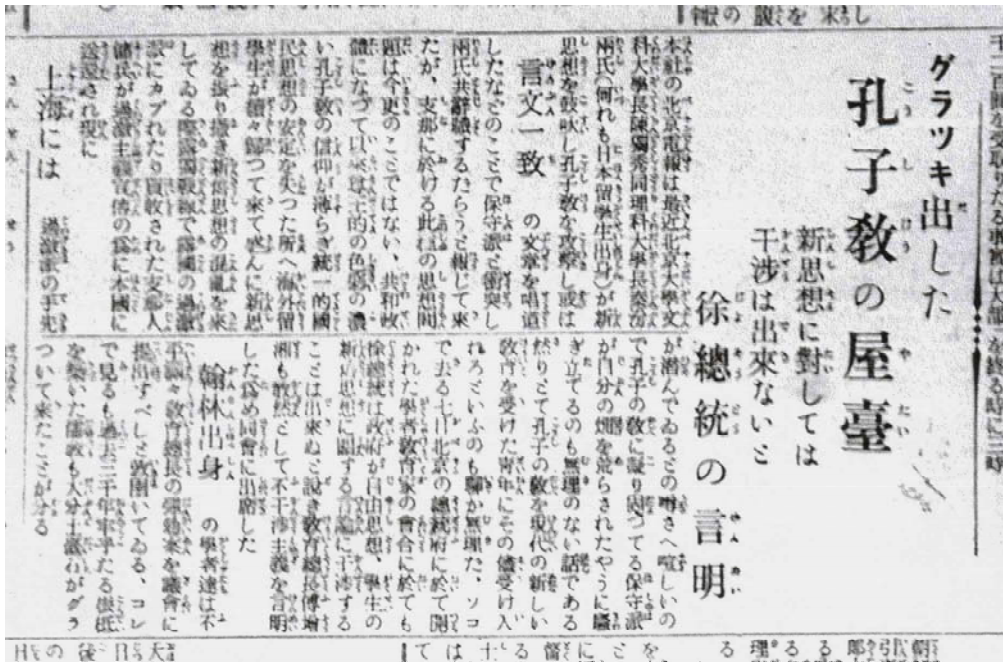 グラツキ出した
孔子教の屋臺
新思想に對しては
干渉は出來ないと
徐總統の言明
本社の北京電報は最近北京大學文
科大學長陳獨秀同理科大學長秦汾
兩氏(何れも日本留學生出身)が新
思想を鼓吹し孔子教を攻擊し或は
言文一致の文章を唱道
したなどのことで保守派と衝突し
兩氏共辭職するだらうと報じて來
たが、支那に於ける此種の思想問
題は今更のことではない、共和政
體になつて以來專主的色彩の濃
い孔子教の信仰が薄らぎ統一的國
民思想の安定を失つた所へ海外留
學生が續々歸つて來て盛んに新思
想を振り撒き新舊思想の混亂を來
してゐる際露獨戰線で露國の過激
派にカブれたり買收された支那人
傭兵が過激主義宣傳の爲に本國に
送還され現に
上海には過激派の手先
が潜んでゐるとの噂さへ喧しいの
で孔子の教に凝り固つてる保守派
が自分の畑を荒らされたやうに騷
ぎ立てるのも無理のない話である
然りとて孔子の教を現代の新しい
教育を受けた靑年にその儘受け入
れろといふのも聊か無理だ、ソコ
で去る七日北京の總統府に於て開
かれた學者教育家の會合に於ても
徐總統は政府が自由思想、學生の
新舊思想に關する言論に干渉する
ことは出來ぬと說き教育總長傅增
湘も敢然として不干渉主義を言明
した爲め同會に出席した
翰林出身の學者達は不
平滿々教育總長の彈劾案を議會に
提出すべしと敦圉いてゐる、コレ
で見るも過去三千年牢乎たる根柢
を築いた儒教も大分土臺石がグラ
ついて來たことが分る